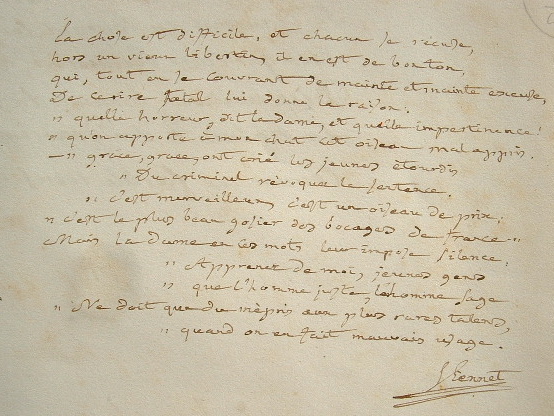 La chose est difficile, et chacun se récuse,
hors un vieux libertin, il en est de bon ton,
qui, tout en se couvrant de mainte et mainte excuse,
De ce rire fatal lui donne la raison.
" quelle horreur, dit la dame, et quelle impertinence!
" qu'on apporte à mon chat cet oiseau mal appris.
— " grace, grace, ont crié les jeunes étourdis
" Du criminel révoquez la sentence.
" c'est merveilleux, c'est un oiseau de prix;
" c'est le plus beau gosier des bocages de france. "
Mais la Dame en ces mots leur impose silence:
" Apprenez de moi, jeunes gens
" que l'homme juste, l'homme sage
" Ne doit que du mépris aux plus rares talens,
" quand on en fait mauvais usage.